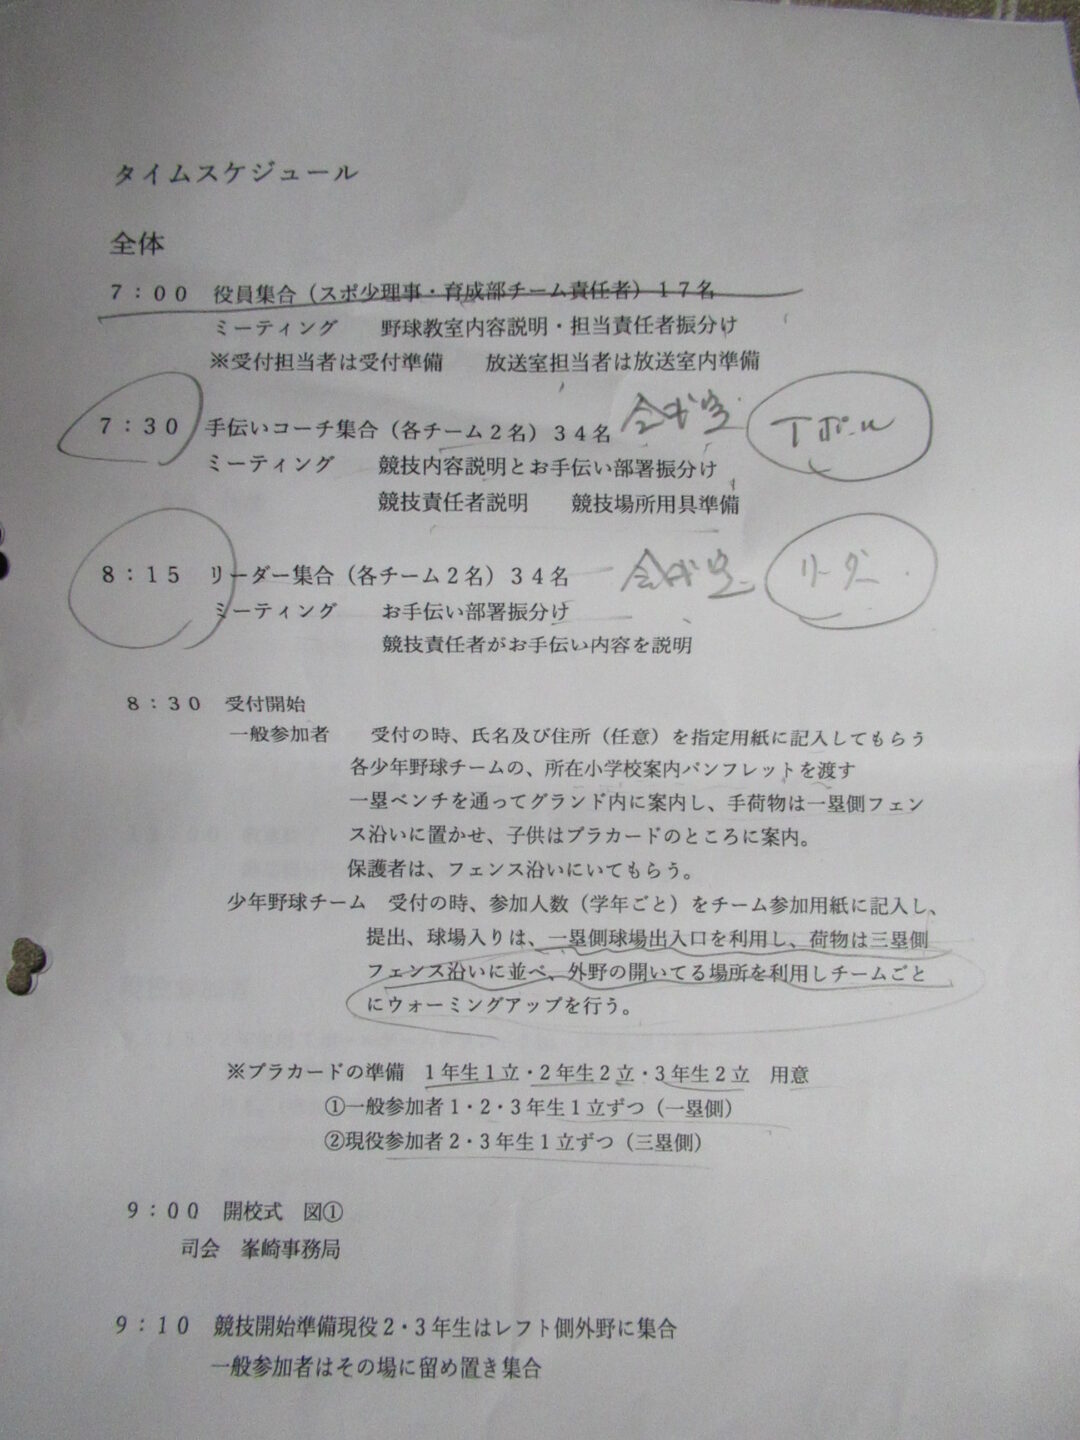 タイムスケジュール
全体
7：00　役員集合（スポ少理事・育成部チーム責任者）17名
ミーティング　野球教室内容説明・担当責任者振分け
※受付担当者は受付準備　放送室担当者は放送室内準備
7：30　手伝いコーチ集合（各チーム2名）34名　会議室　Tボール
ミーティング　競技内容説明とお手伝い部署振分け
競技責任者説明　競技場所用具準備
8：15　リーダー集合（各チーム2名）34名　会議室　リーダー
ミーティング　お手伝い部署振分け
競技責任者がお手伝い内容を説明
8：30　受付開始
一般参加者　受付の時、氏名及び住所（任意）を指定用紙に記入してもらう
各少年野球チームの、所在小学校案内パンフレットを渡す
一塁ベンチを通ってグランド内に案内し、手荷物は一塁側フェン
ス沿いに置かせ、子供はプラカードのところに案内。
保護者は、フェンス沿いにいてもらう。
少年野球チーム　受付の時、参加人数（学年ごと）をチーム参加用紙に記入し、
提出、球場入りは、一塁側球場出入口を利用し、荷物は三塁側
フェンス沿いに並べ、外野の開いてる場所を利用しチームごと
にウォーミングアップを行う。
※プラカードの準備　1年生1立・2年生2立・3年生2立　用意
①一般参加者1・2・3年生1立ずつ（一塁側）
②現役参加者2・3年生1立ずつ（三塁側）
9：00　開校式　図①
司会　峯崎事務局
9：10　競技開始準備現役2・3年生はレフト側外野に集合
一般参加者はその場に留め置き集合